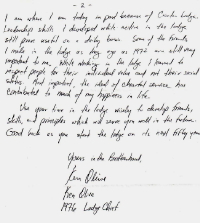 - 2 -
I am where I am today in good because of Circle Lodge.
Leadership skills I developed while active in the lodge
still prove useful on a daily basis. Some of the friends
I made in the lodge as long ago as 1972 are still very
important to me. While working in the lodge I learned to
respect people for their individual value and not their social
status. Most important, the ideal of cheerful service, has
contributed to much of my happiness in life.
Use your time in the lodge wisely to develop friends,
skills, and principles which will serve you well in the future.
Good luck as you start the lodge on its next fifty years.
Yours in the Brotherhood,
Ken
Ken
1976 Lodge Chief